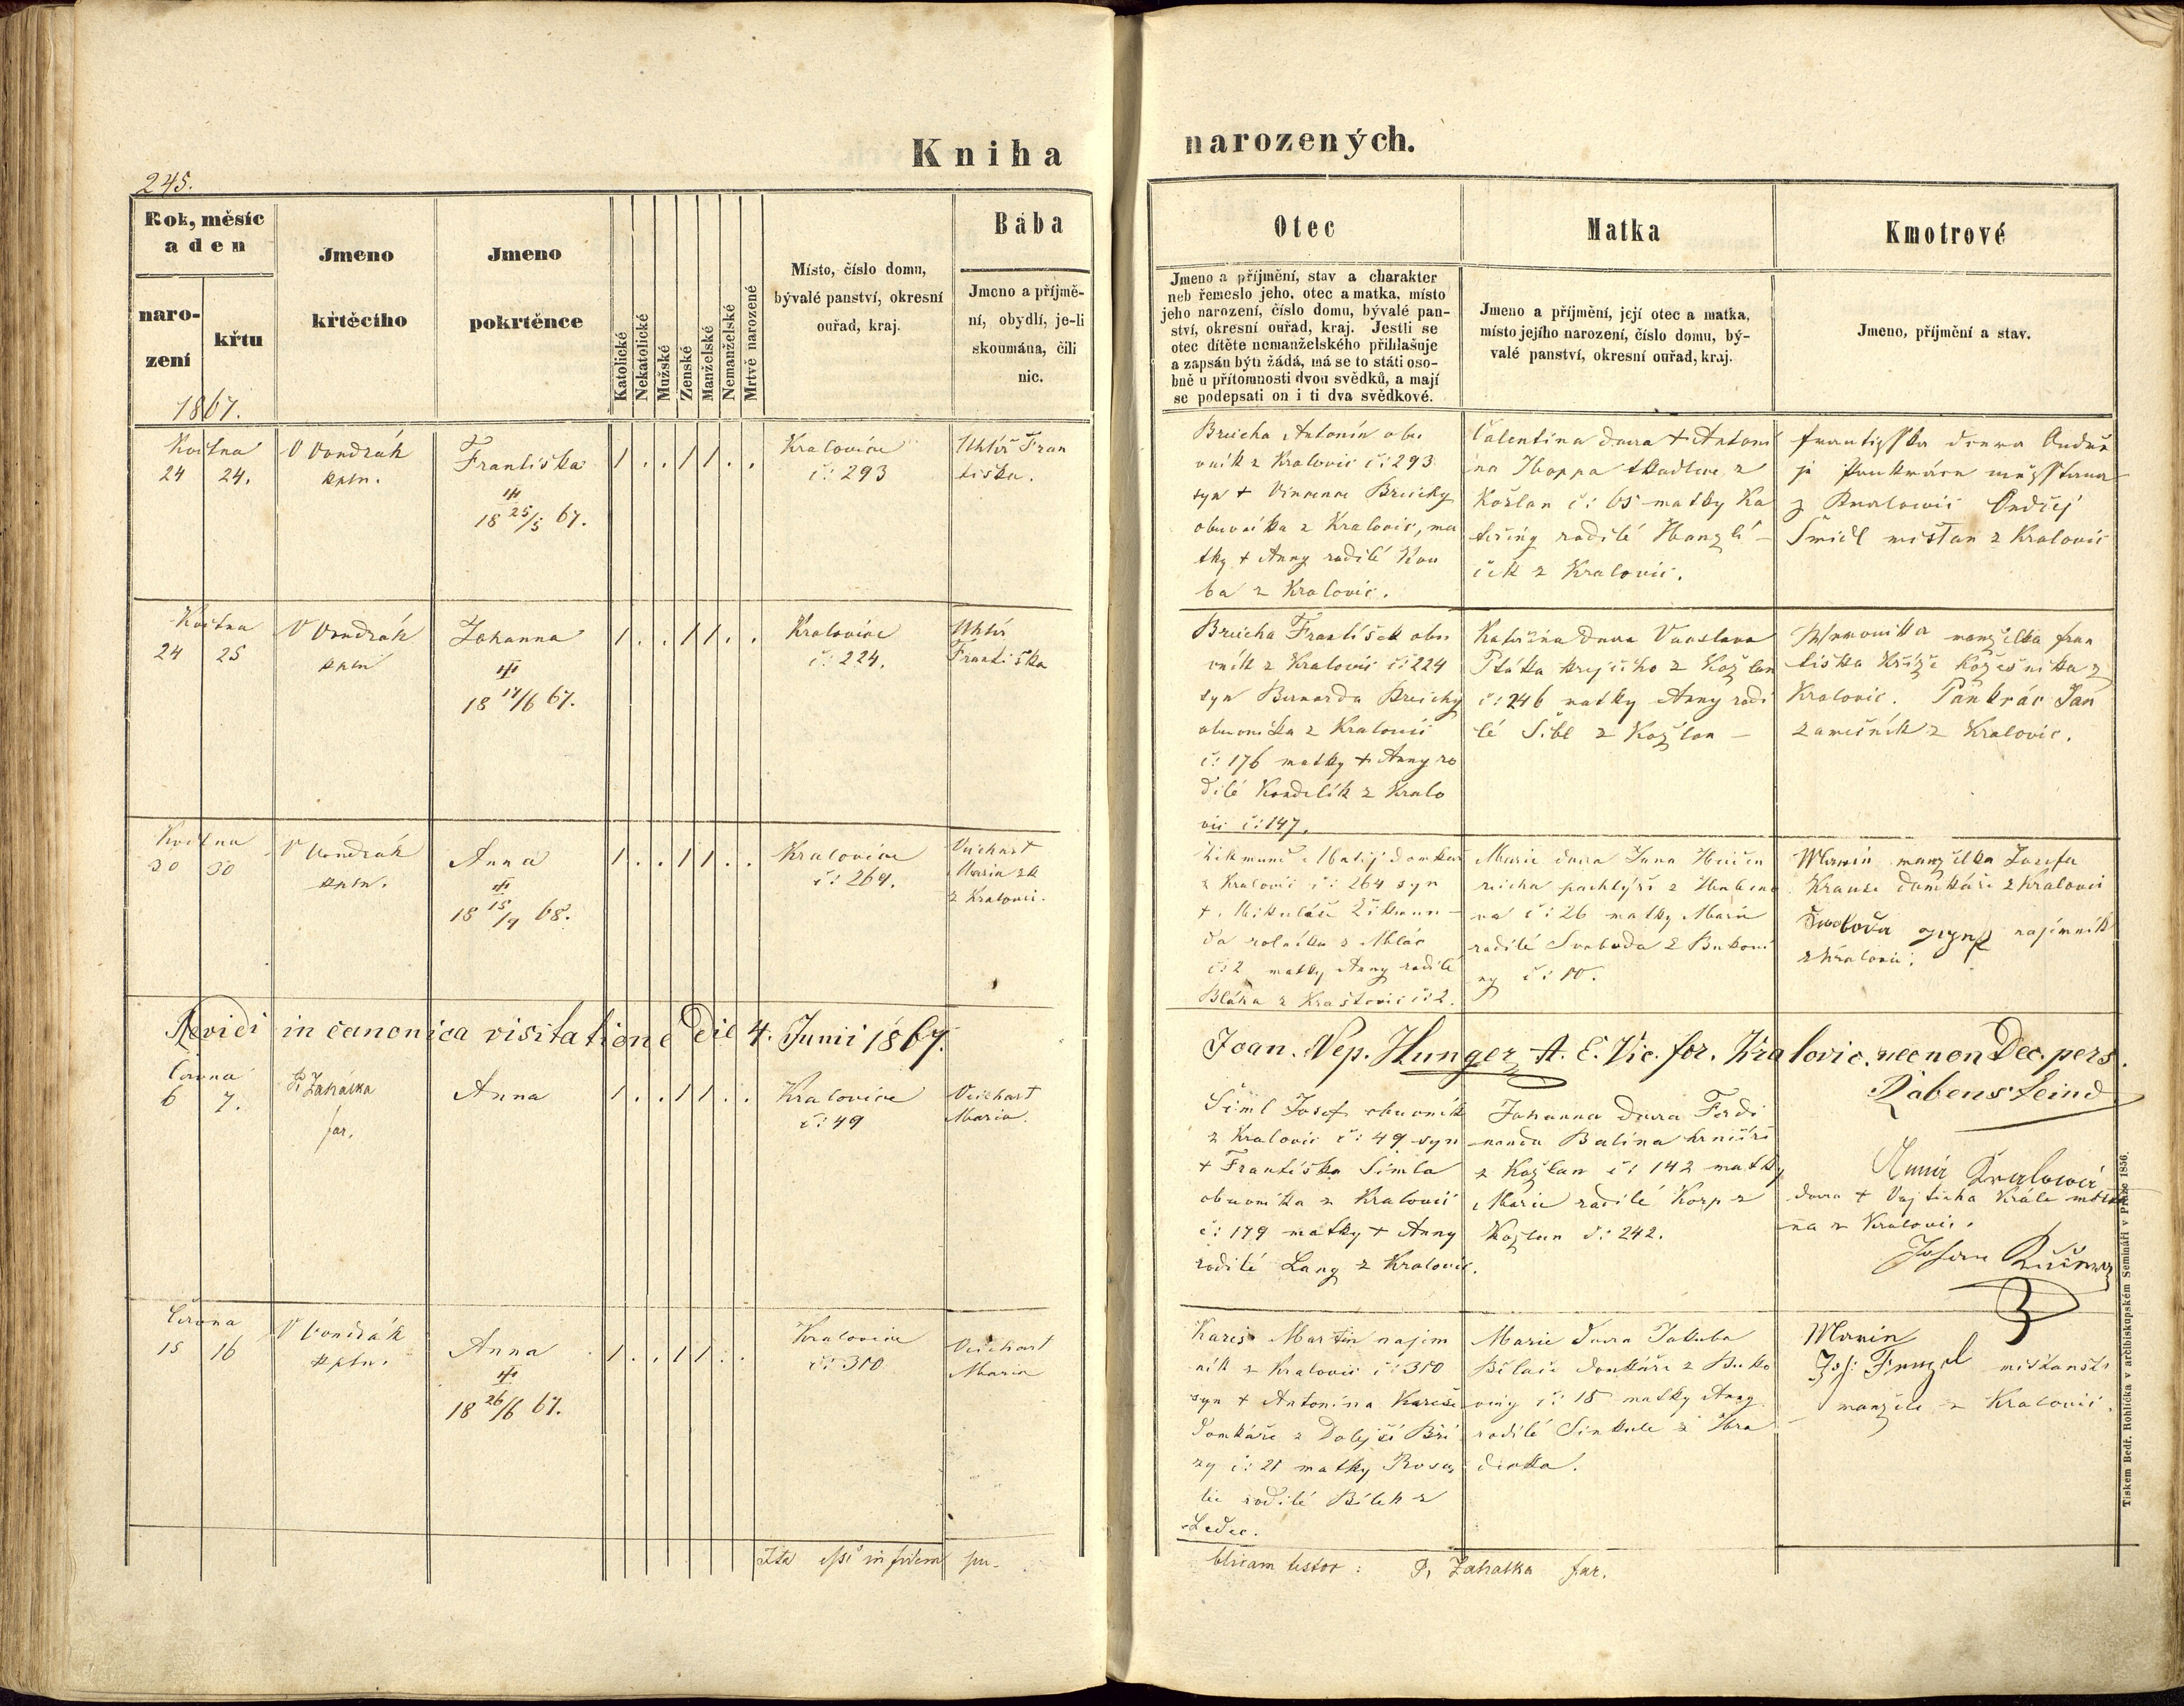 Kniha
narozených.
245.
Rok, měsíc
a den
naro-
zení
křtu
1867.
Jmeno
křtěcího
Jmeno
pokrtěnce
Katolické
Nekatolické
Mužské
Ženské
Manželské
Nemanželské
Mrtvě narozené
Místo, číslo domu,
bývalé panství, okresní
ouřad, kraj.
Bába
Jmeno a příjmě-
ní, obydlí, je-li
skoumána, čili
nic.
Otec
Jmeno a příjmění, stav a charakter
neb řemeslo jeho, otec a matka, místo
jeho narození, číslo domu, bývalé pan-
ství, okresní ouřad, kraj. Jestli se
otec dítěte nemanželského přihlašuje
a zapsán býti žádá, má se to státi oso-
bně u přítomnosti dvou svědků, a mají
se podepsati on i ti dva svědkové.
Matka
Jmeno a příjmění, její otec a matka,
místo jejího narození, číslo domu, bý-
valé panství, okresní ouřad, kraj.
Kmotrové
Jmeno, příjmění a stav.
Května
24 24.
V Vondrák
kpln.
Františka
18 25/5 67.
1 . . 1 1 . .
Kralovice
č: 293
Uhlíř Fran
tiška.
Breicha Antonín obu
vník z Kralovic č: 293
syn + Vincence Breichy
obuvníka z Kralovic, ma
tky + Anny rodilé Kou
ba z Kralovic.
Valentina dcera + Antoní
na tkadlce z
Kožlan č: 65 matky Ka
teřiny rodilé
ček z Kralovic.
Františka dcera Ondře
je Pankráce měšťana
z Kralovic Ondřej
Šmidl měšťan z Kralovic
Května
24 25
V Vondrák
kpln
Johanna
18 17/6 67.
1 . . 1 1 . .
Kralovice
č: 224.
Uhlíř
Františka
Breicha František obu
vník z Kralovic č: 224
syn Bernarda Breichy
obuvníka z Kralovic
č: 176 matky + Anny ro
dilé Kondelík z Kralo
vic č: 147.
Kateřina dcera Vácslava
Ptáka krejčího z Kožlan
č: 246 matky Anny rodi
lé Šibl z Kožlan –
manželka Fran
tiška Kříže kožešníka z
Kralovic. Pankrác Jan
zámečník z Kralovic.
Května
30 30
V Vondrák
kpln.
Anna
18 15/9 68.
1 . . 1 1 . .
Kralovice
č: 264.
Veichart
Maria zk
z Kralovic.
Zikmund Matěj domkář
z Kralovic č: 264 syn
+ Mikuláše Zikmun-
da rolníka z Mláz
č: 2 matky Anny rodilé
Bláha z Hrašťovic č: 2.
Marie dcera Jana
z
č: 26 matky Marie
rodilé Svoboda z Bukovi
ny č: 10.
Marie manželka Josefa
Krause domkáře z Kralovic
nájemník
z Kralovic.
Revidi in canonica visitatione die 4. Junii 1867.
Joan. Nep. Hunger A. E. Vic. for. Kralovic. nec non Dec. pers.
Rabensteind
Června
6 7.
P. Zahálka
far.
Anna
1 . . 1 1 . .
Kralovice
č: 49
Veichart
Maria.
Šiml Josef obuvník
z Kralovic č: 49 syn
+ Františka Šimla
obuvníka z Kralovic
č: 179 matky + Anny
rodilé Lang z Kralovic.
Johanna dcera Ferdi
nanda Balína hrnčíře
z Kožlan č: 142 matky
Marie rodilé Korp z
Kožlan č: 242.
Anna Kralowa
dcera + Vojtěcha Krále měšťa
na z Kralovic.
Johan
Června
15 16
V Vondrák
kpln.
Anna
18 26/6 67.
1 . . 1 1 . .
Kralovice
č: 310
Veichart
Maria
Kareis Martin nájem
ník z Kralovic č: 310
syn + Antonína Kareise
domkáře z Dolejší Bří
zy č: 21 matky Rosa
lie rodilé Bílek z
Ledec.
Marie dcera Jakuba
domkáře z Buko
viny č: 15 matky Anny
rodilé Sinkule z Hra
decka.
Marie
Jos: Frenzel měšťanští
manželé z Kralovic.
Ita esse in fidem pu-
blicam testor: P. Zahálka far.
Tiskem Bedř. Rohlíčka v arcibiskupském Semináři v Praze 1856.